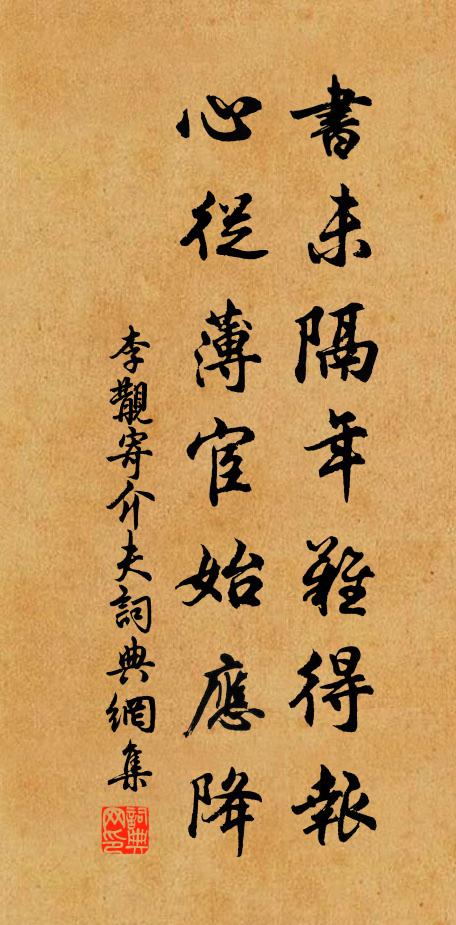 書未隔年難得報
心從薄宦始應降
李覯寄介夫詞典網集
詞典网印